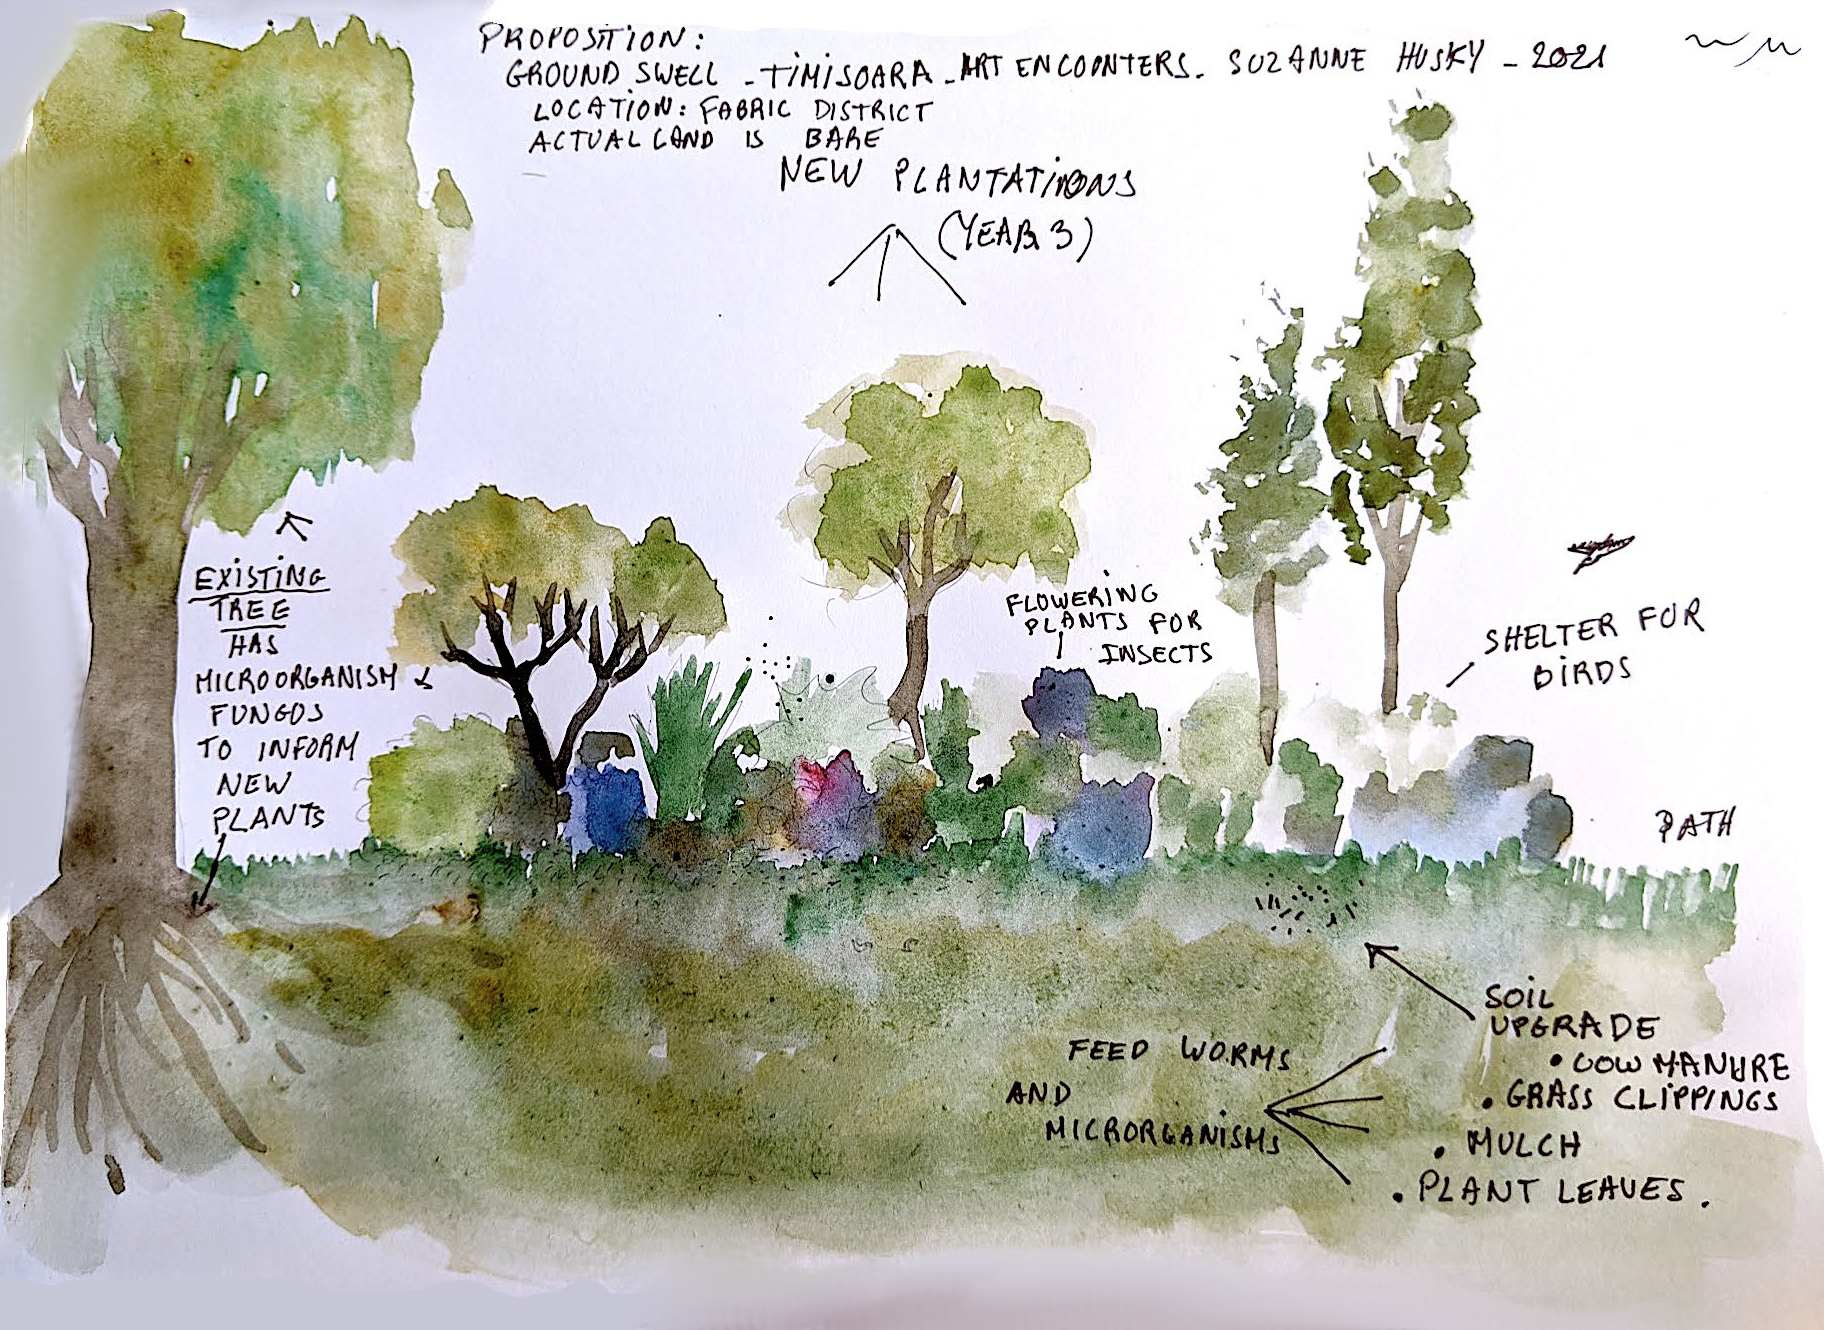 PROPOSITION:
GROUND SWELL - TIMISOARA - ART ENCOUNTERS. SUZANNE HUSKY - 2021
LOCATION: FABRIC DISTRICT
ACTUAL LAND IS BARE
NEW PLANTATIONS
(YEAR 3)
EXISTING
TREE
HAS
MICROORGANISM
FUNGOS
TO INFORM
NEW
PLANTS
FLOWERING
PLANTS FOR
INSECTS
SHELTER FOR
BIRDS
PATH
SOIL
UPGRADE
• COW MANURE
• GRASS CLIPPINGS
• MULCH
• PLANT LEAVES.
FEED WORMS
AND
MICRORGANISMS